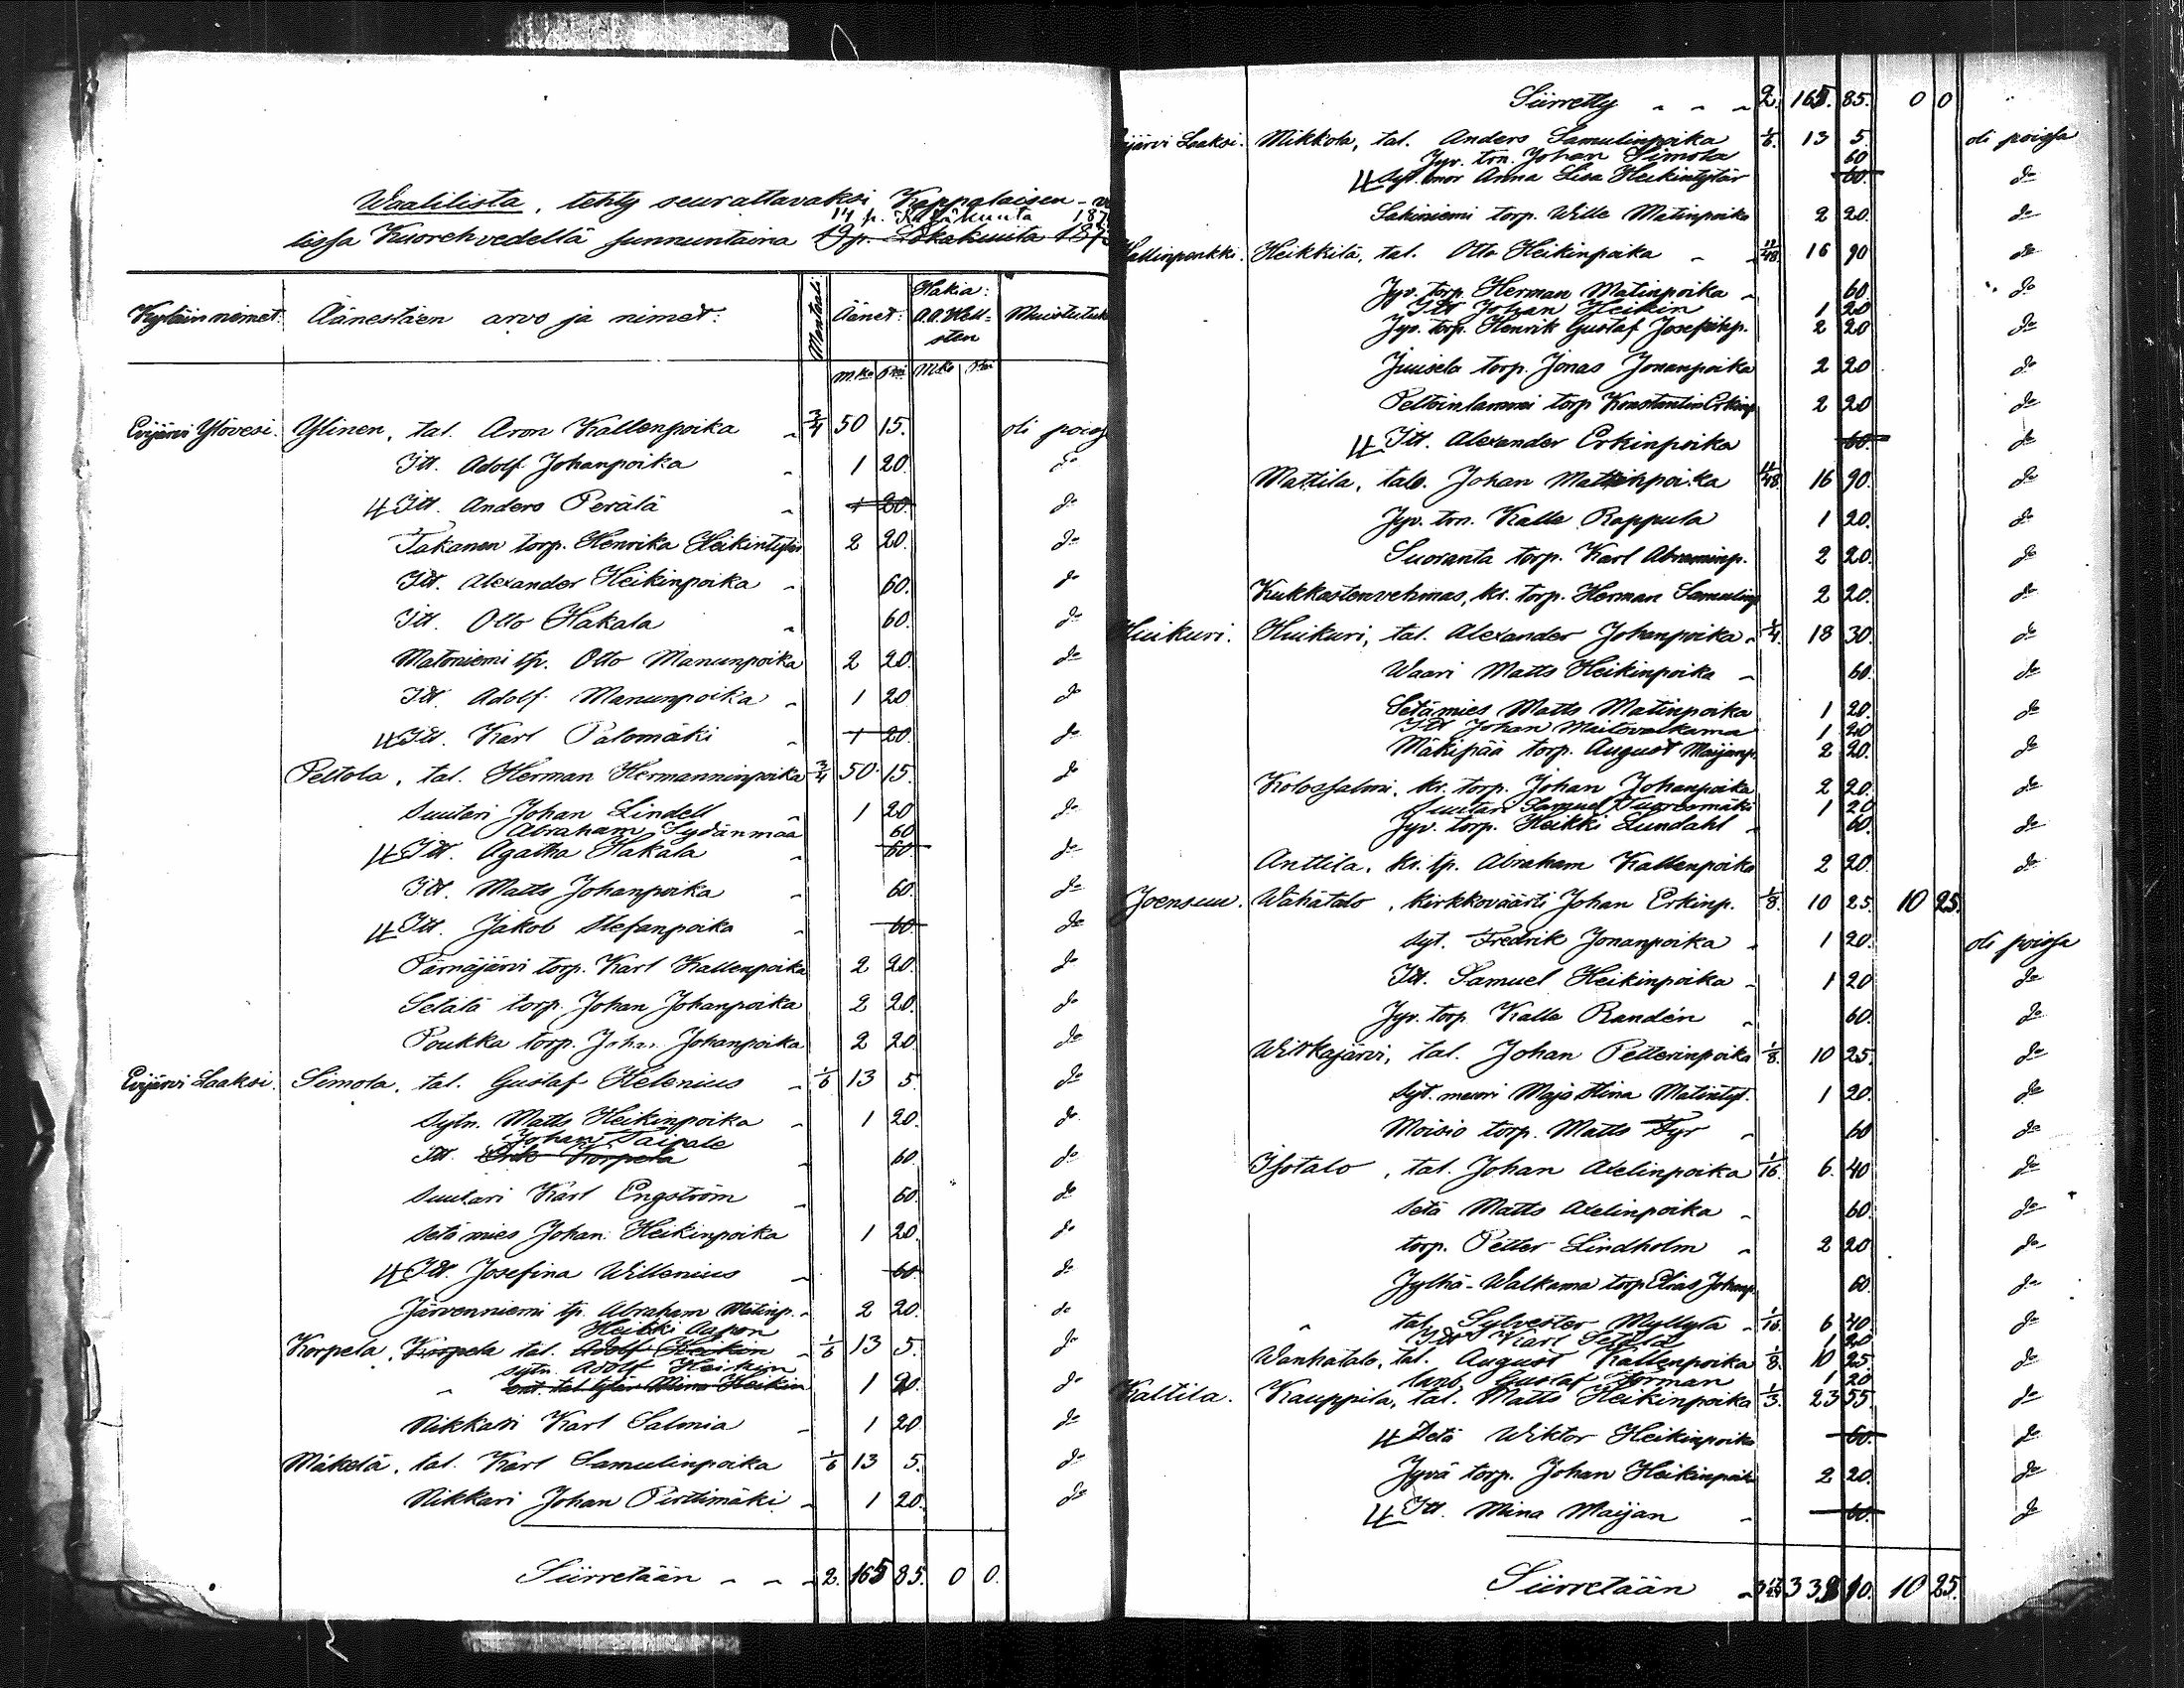 Waalilista, tehty seurattavaksi Kappalaisen-
14 p. 187
lissa Kuorehvedellä sunnuntaina 19 p. Lokakuuta 187
Kyläin nimet. Äänestäen arvo ja nimet: Mantaali Äänet: Hakia: A.A. Hell-sten Muistutuk
Mka Pni Mka Pni
Evijärvi Ylövesi. Ylinen, tal. Aron Kallenpoika 3/4 50 15. oli poissa
Itt. Adolf Johanpoika 1 20. do
4 Itt. Anders Perälä 1 20. do
Takanen torp. Henrika Heikintytär 2 20. do
Itt. Alexander Heikinpoika 60. do
Itt. Otto Hakala 60. do
Matoniemi tp. Otto Manunpoika 2 20. do
Itt. Adolf Manunpoika 1 20 do
4 Itt. Karl Palomäki 1 20. do
Peltola, tal. Herman Hermanninpoika 3/4 50. 15. do
Suutari Johan Lindell 1 20 do
Abraham Sydänmaa 60
4 Itt. Agatha Hakala 60. do
Itt. Matts Johanpoika 60. do
4 Itt. Jakob Stefanpoika 60. do
Pärnäjärvi torp. Karl Kallenpoika 2 20. do
Setälä torp. Johan Johanpoika 2 20. do
Poukka torp. Johan Johanpoika 2 20. do
Evijärvi Laaksi. Simola, tal. Gustaf Helenius 1/6 13 5. do
Sytn. Matts Heikinpoika 1 20. do
Johan Taipale
Itt. Erik Korpela 60. do
Suutari Karl Engström 60. do
Setä mies Johan Heikinpoika 1 20. do
4 Itt. Josefina Willenius 60. do
Järvenniemi tp. Abraham Matinp. 2 20. do
Heikki Aapon
Korpela, Korpela tal. Adolf Heikin 1/6 13 5. do
sytn. Adolf Heikin
ent. tal. tytär Mina Heikin 1 20. do
Nikkari Karl Salmia 1 20 do
Mäkelä, tal. Karl Samulinpoika 1/6 13 5. do
Nikkari Johan Perttimäki 1 20. do
Siirretään 2. 165 85. 0 0.
Siirretty 2. 165. 85. 0 0
ijärvi Laaksi. Mikkola, tal. Anders Samulinpoika 1/6. 13 5. oli poissa
Jyv. trn. Johan Simola 60
4 Syt. muor Anna Lisa Heikintytär 60. do
Sakiniemi torp. Wille Matinpoika 2 20. do
Hallinpenkki. Heikkilä, tal. Otto Heikinpoika 11/48. 16 90 do
Jyv. torp. Herman Matinpoika 60 do
Itt Johan Heikin 1 20
Jyv. torp. Henrik Gustaf Josefinp. 2 20 do
Juusela torp. Jonas Jonanpoika 2 20 do
Peltoinlammi torp Konstantin Erkinp 2 20 do
4 Itt. Alexander Erkinpoika 60. do
Mattila, talo. Johan Mattinpoika 11/48. 16 90. do
Jyv. trn. Kalle Rappula 1 20. do
Suoranta torp. Karl Abraminp. 2 20. do
Kukkastenvehmas, kr. torp. Herman Samulinp 2 20. do
Huikuri. Huikuri, tal. Alexander Johanpoika 1/4. 18 30. do
Waari Matts Heikinpoika 60. do
Setämies Matts Matinpoika 1 20. do
Itt Johan Maitovalkama 1 20
Mäkipää torp. August Maijanp. 2 20. do
Kolossalmi, kr. torp. Johan Johanpoika 2 20. do
Suutari Samuel Tuoresmäki 1 20
Jyv. torp. Heikki Lundahl 60. do
Anttila, kr. tp. Abraham Kallenpoika 2 20. do
Joensuu. Wähätalo, kirkkoväärti Johan Erkinp. 1/8. 10 25. 10 25.
Syt. Fredrik Jonanpoika 1 20. oli poissa
Itt. Samuel Heikinpoika 1 20 do
Jyv. torp Kalle Randén 60. do
Witkajärvi, tal. Johan Petterinpoika 1/8. 10 25. do
Syt. muori Maja Stina Matintyt. 1 20. do
Moisio torp. Matts Fyr 60 do
Isotalo, tal. Johan Axelinpoika 1/16. 6. 40 do
Setä Matts Axelinpoika 60. do
torp. Petter Lindholm 2 20 do
Jylhä-Walkama torp. Elias Johanp. 60. do
" tal. Sylvester Myllylä 1/16. 6 40. do
Itt Karl Setälä 1 20
Wanhatalo, tal. August Kallenpoika 1/8. 10 25. do
lanb. Gustaf Forman 1 20
Kaltila. Kauppila, tal. Matts Heikinpoika 1/3. 23 55. do
4 Setä Wiktor Heikinpoika 60. do
Jyvä torp. Johan Heikinpoika 2 20. do
4 Itt. Mina Maijan 60. do
Siirretään 10 25.